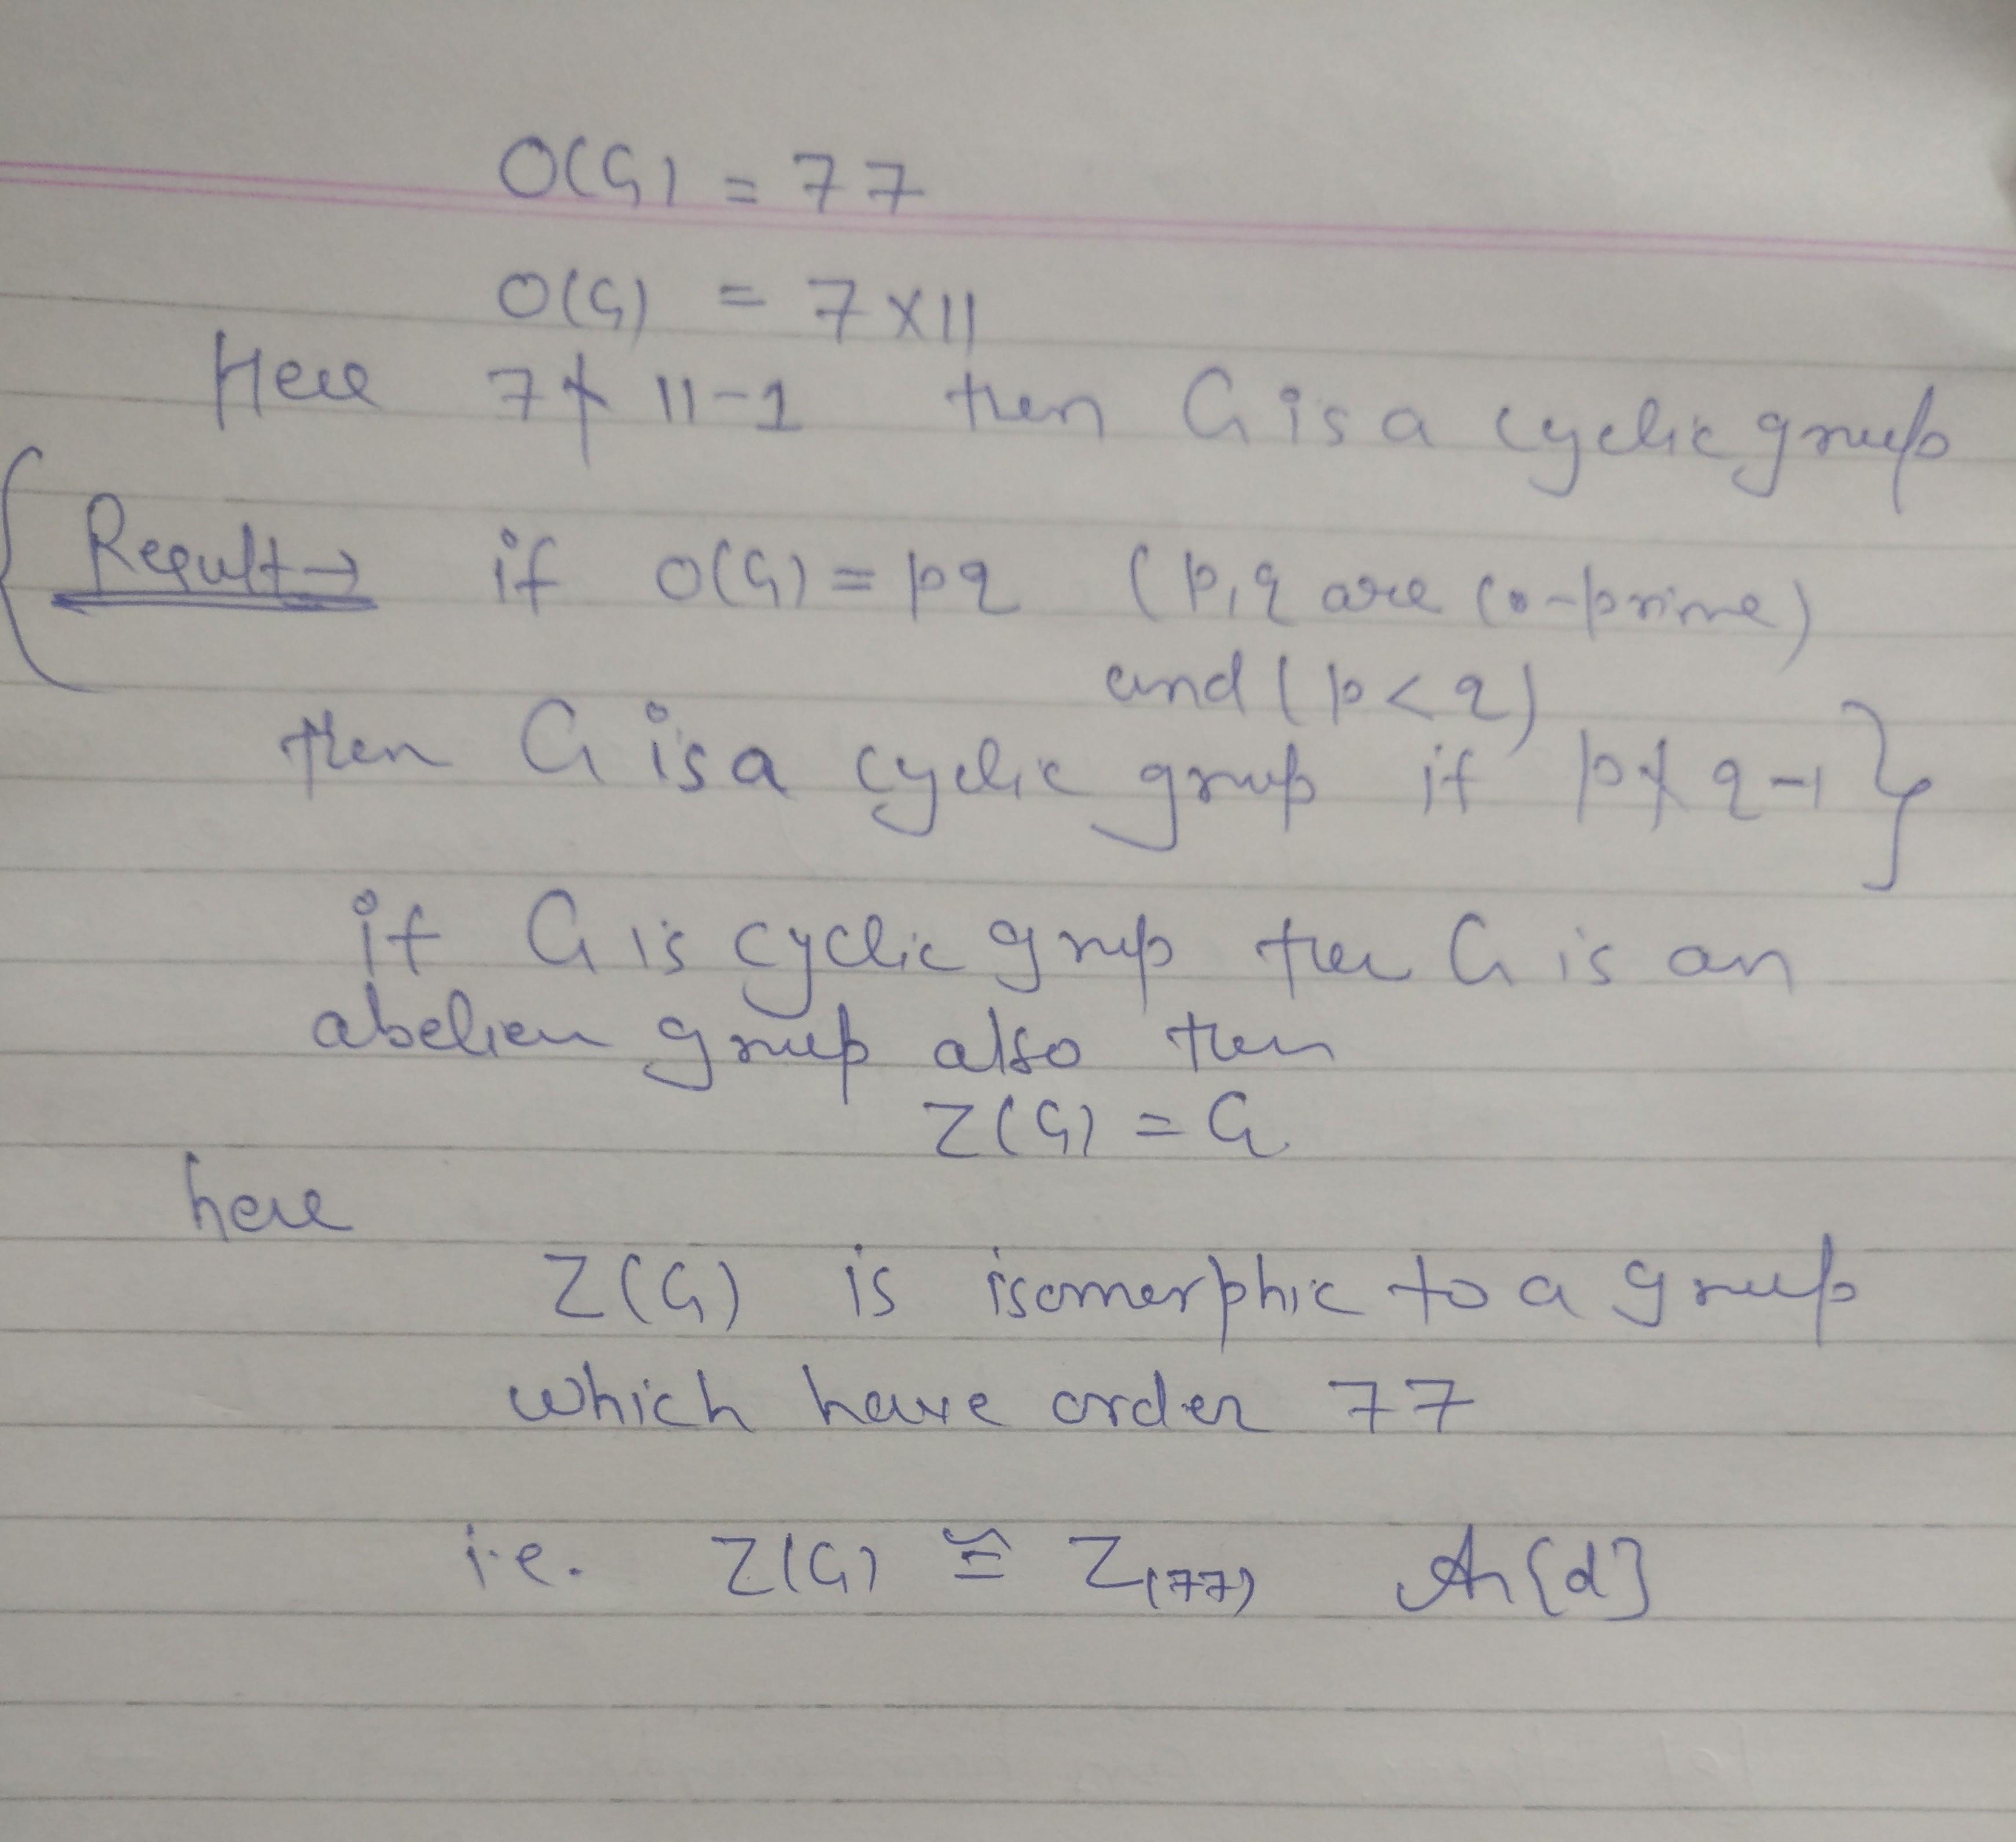 O(G) = 77
O(G) = 7 × 11
Here 7 ∤ 11-1 then G is a cyclic group
{ Result → if O(G) = pq (p, q are co-prime)
and (p < q)
then G is a cyclic group if p ∤ q-1 }
if G is cyclic group then G is an
abelian group also then
Z(G) = G
here
Z(G) is isomorphic to a group
which have order 77
i.e. Z(G) ≅ Z(77) An {d}